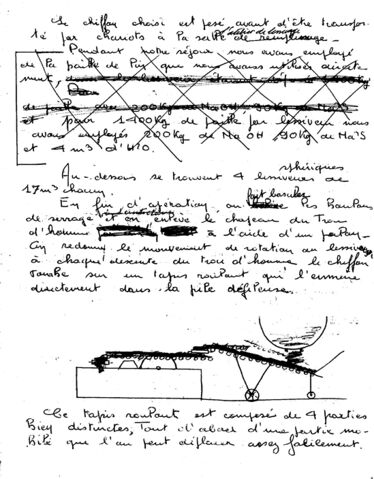 Le chiffon choisi est pesé avant d'être transpor-
té par chariots à la salle de remplissage.
Pendant notre séjour nous avons employé
de la paille de que nous avons utilisée directe-
ment,
de paille avec 200 Kg de NaOH 90 Kg de Na²S
et pour 1400 Kg de paille par lessiveur nous
avons employés 200 Kg de NaOH 90 Kg de Na²S
et 4 m3 d'H²O.
Au-dessous se trouvent 4 lessiveurs sphériques de
17 m3 chacun.
En fin d'opération on fait basculer les boulons
de serrage et on enlève le chapeau du trou
d'homme à l'aide d'un palan.
On redonne le mouvement de rotation au lessiveur
à chaque descente du trou d'homme le chiffon
tombe sur un tapis roulant qui l'emmène
directement dans la pile défileuse.
Ce tapis roulant est composé de 4 parties
Bien distinctes, Tout d'abord d'une partie mo-
bile que l'on peut déplacer assez facilement.